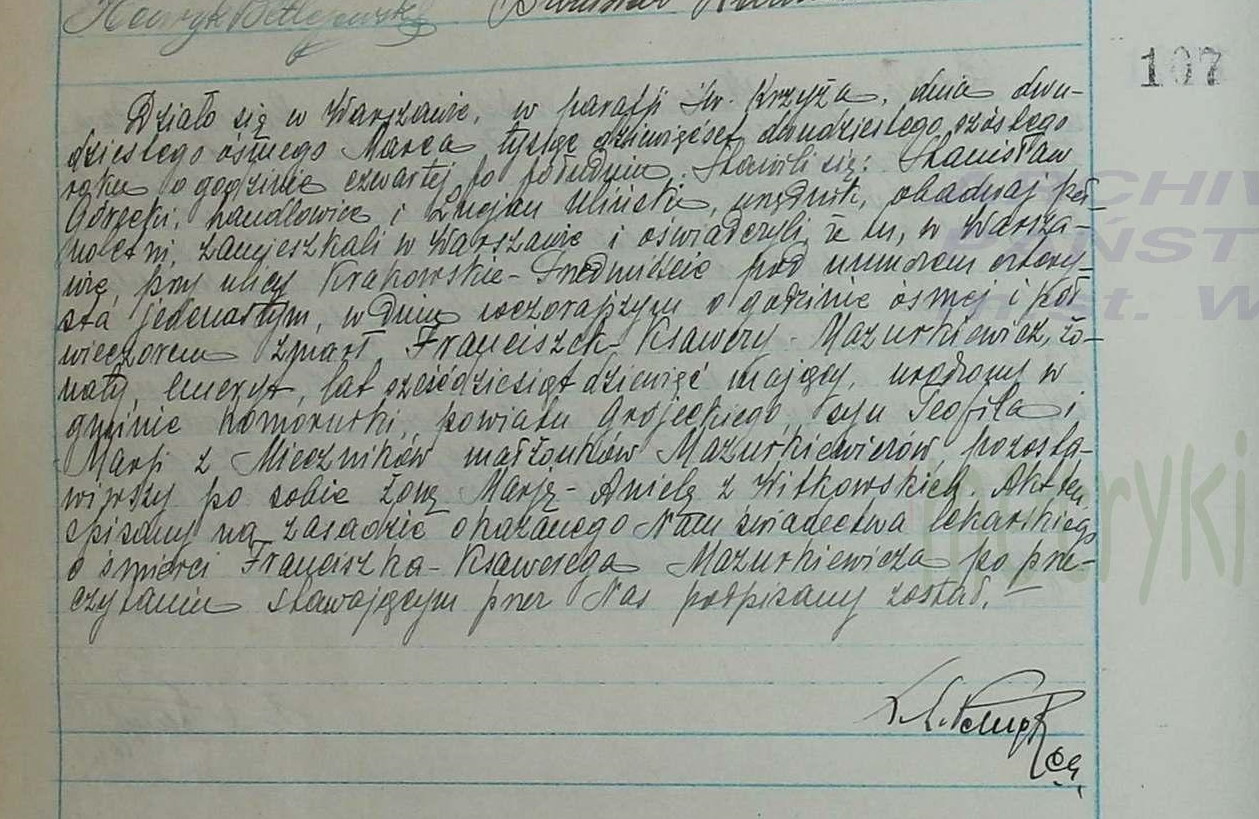 Henryk Betlejewski
107
Działo się w Warszawie, w parafji Św. Krzyża, dnia dwu-
dziestego ósmego Marca tysiąc dziewięćset dwudziestego szóstego
roku o godzinie czwartej po południu. Stawili się: Stanisław
Górecki, handlowiec i Lucjan Uliński, urzędnik, obadwaj peł-
noletni, zamieszkali w Warszawie i oświadczyli, że tu, w Warsza-
wie, przy ulicy Krakowskie-Przedmieście pod numerem cztery-
sta jedenastym, w dniu wczorajszym o godzinie ósmej i pół
wieczorem zmarł Franciszek-Ksawery Mazurkiewicz, żo-
naty, emeryt, lat sześćdziesiąt dziewięć mający, urodzony w
gminie Komorniki, powiatu Grójeckiego, syn Teofila i
Marji z Mieczników małżonków Mazurkiewiczów, pozosta-
wiwszy po sobie żonę Marję-Anielę z Witkowskich. Akt ten
spisany na zasadzie okazanego Nam świadectwa lekarskiego
o śmierci Franciszka-Ksawerego Mazurkiewicza po prze-
czytaniu stawającym przez Nas podpisany został. —
ARCHIW
PAŃST
m.st. W
metryki